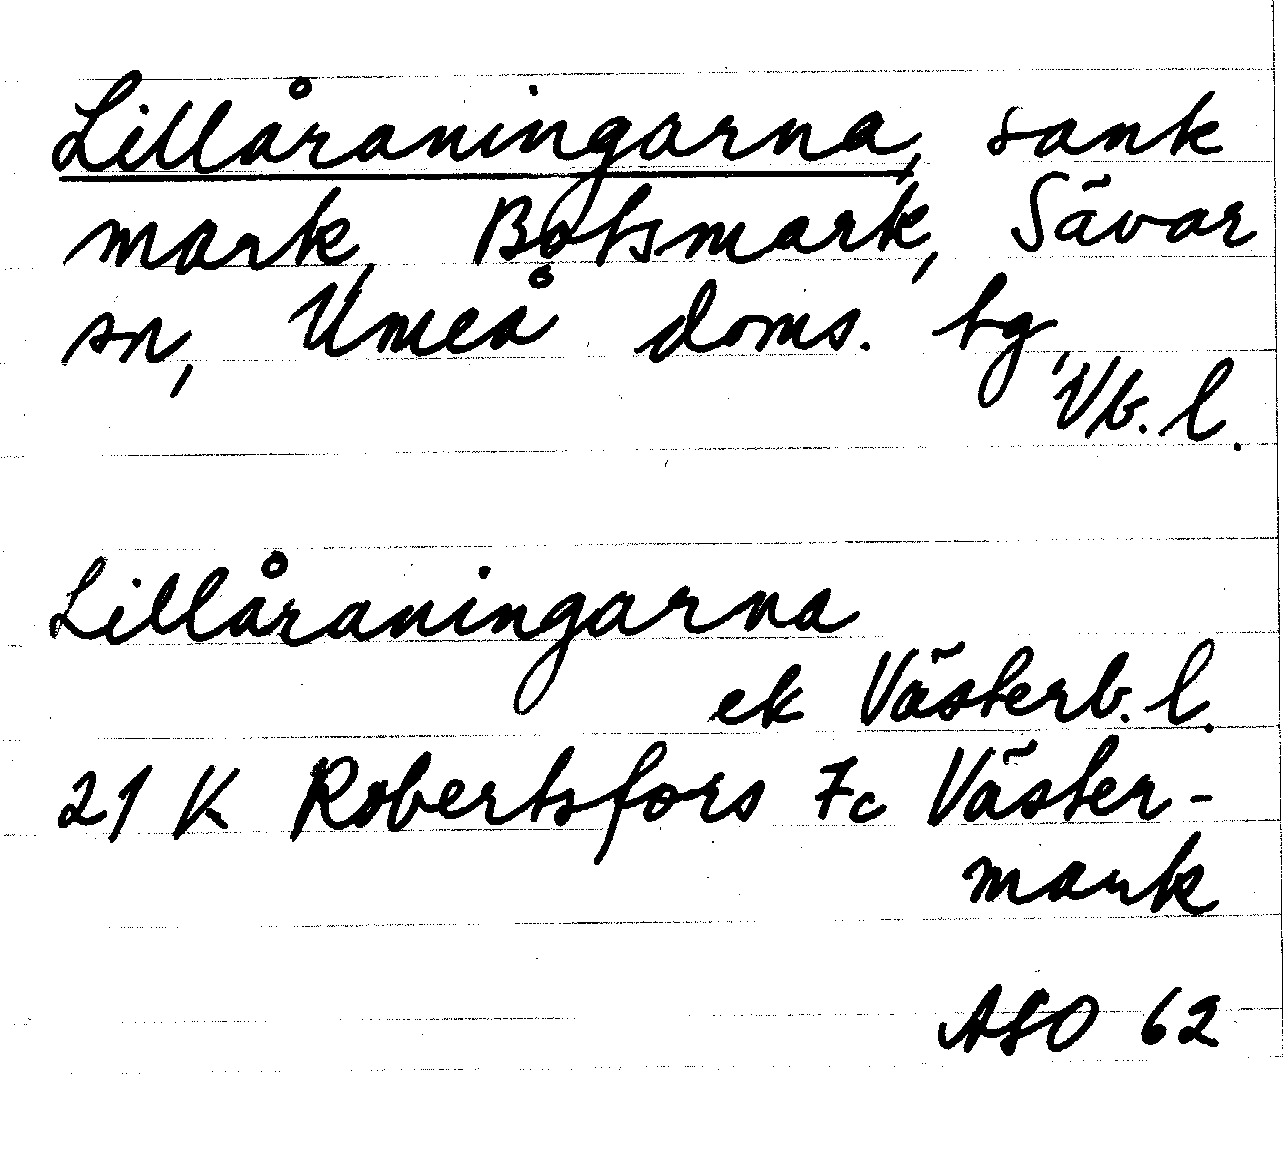 Lillåraningarna, sank
mark, Botsmark, Sävar
sn, Umeå doms. tg,
Vb. l.
Lillåraningarna
ek Västerb. l.
21 K Robertsfors 7c Väster-
mark
ASO 62